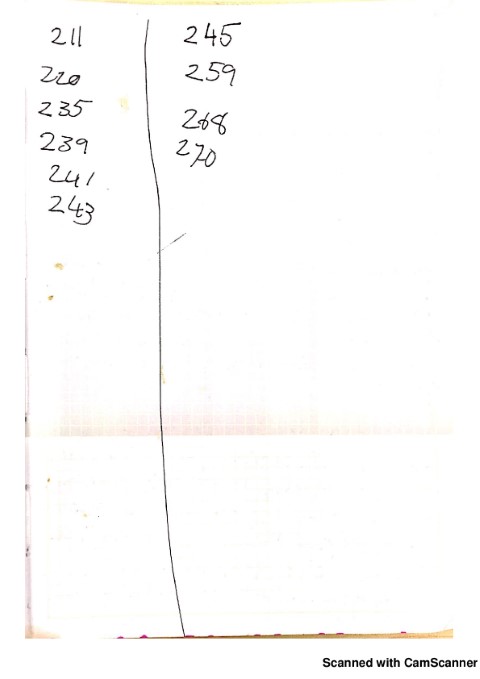 211
220
235
239
241
243
245
259
268
270
Scanned with CamScanner